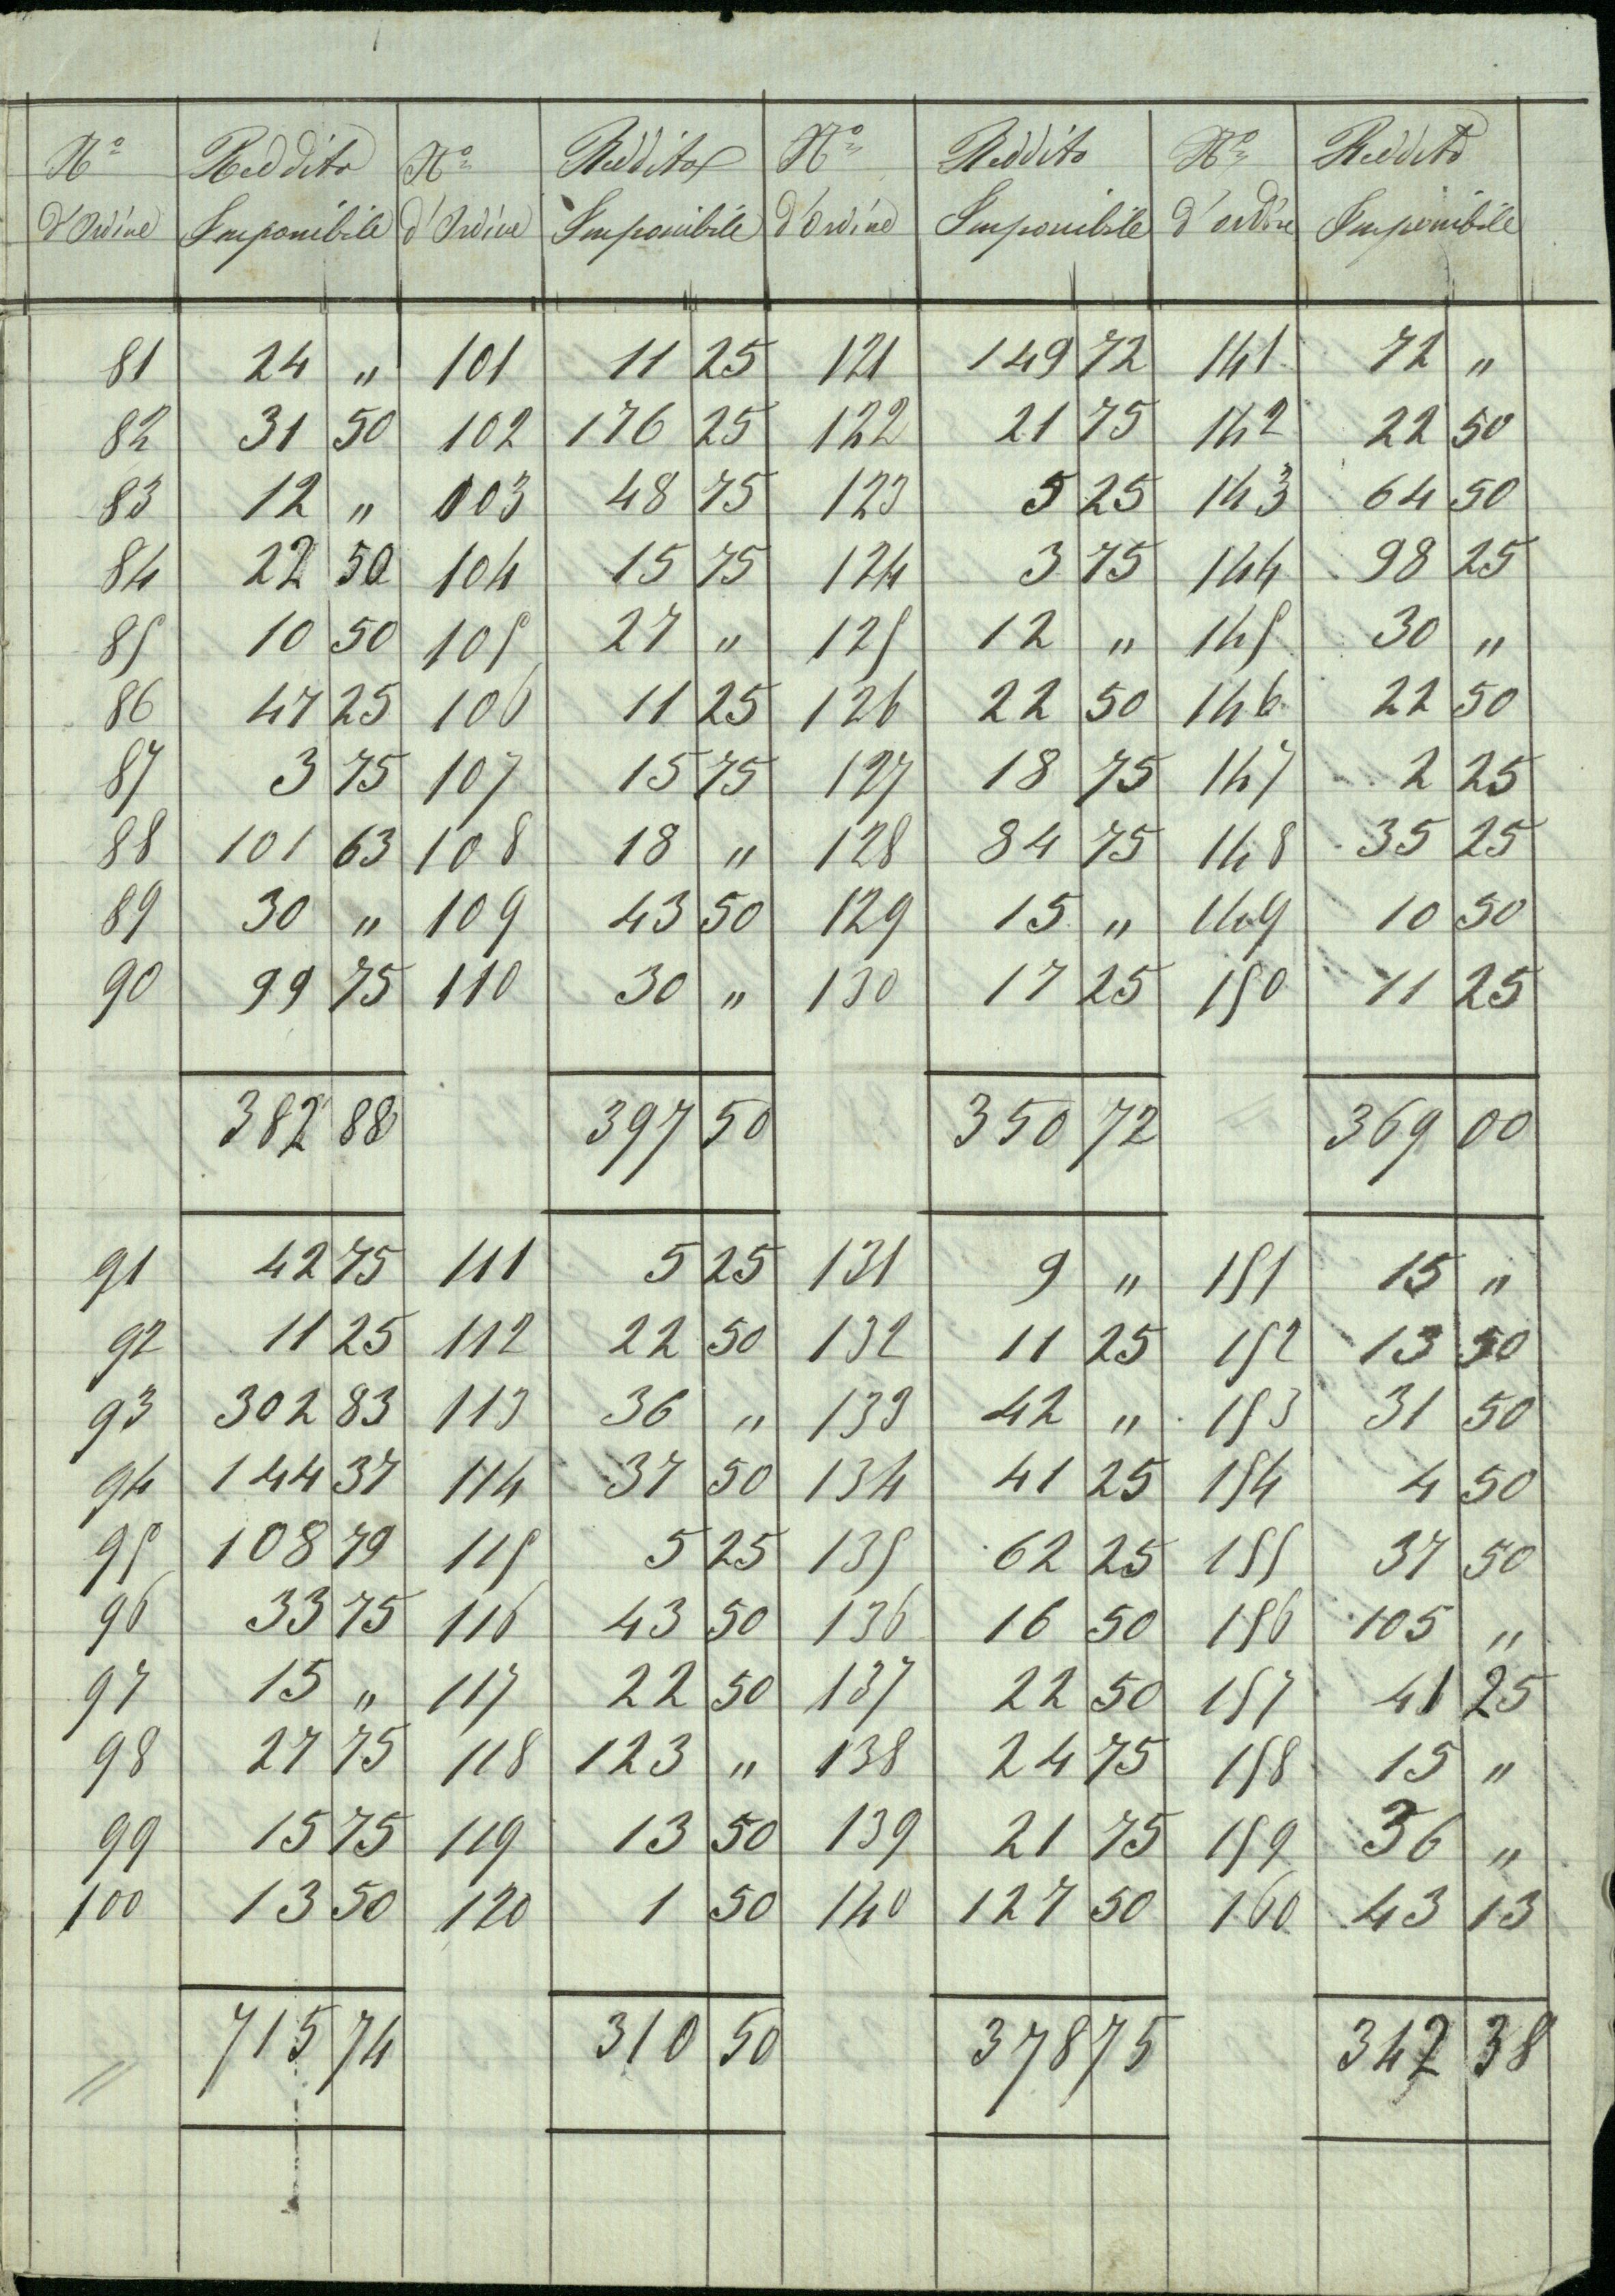 Nº Reddito Nº Reddito Nº Reddito Nº Reddito
d'Ordine Imponibile d'Ordine Imponibile d'Ordine Imponibile d'ordine Imponibile
81 24 „ 101 11 25 121 149 72 141 72 „
82 31 50 102 176 25 122 21 75 142 22 50
83 12 „ 003 48 75 123 5 25 143 64 50
84 22 50 104 15 75 124 3 75 144 98 25
85 10 50 105 27 „ 125 12 „ 145 30 „
86 47 25 106 11 25 126 22 50 146 22 50
87 3 75 107 15 75 127 18 75 147 2 25
88 101 63 108 18 „ 128 84 75 148 35 25
89 30 „ 109 43 50 129 15 „ 149 10 50
90 99 75 110 30 „ 130 17 25 150 11 25
382 88 397 50 350 72 369 00
91 42 75 111 5 25 131 9 „ 151 15 „
92 11 25 112 22 50 132 11 25 152 13 50
93 302 83 113 36 „ 133 42 „ 153 31 50
94 144 37 114 37 50 134 41 25 154 4 50
95 108 79 115 5 25 135 62 25 155 37 50
96 33 75 116 43 50 136 16 50 156 105 „
97 15 „ 117 22 50 137 22 50 157 41 25
98 27 75 118 123 „ 138 24 75 158 15 „
99 15 75 119 13 50 139 21 75 159 36 „
100 13 50 120 1 50 140 127 50 160 43 13
715 74 310 50 378 75 342 38